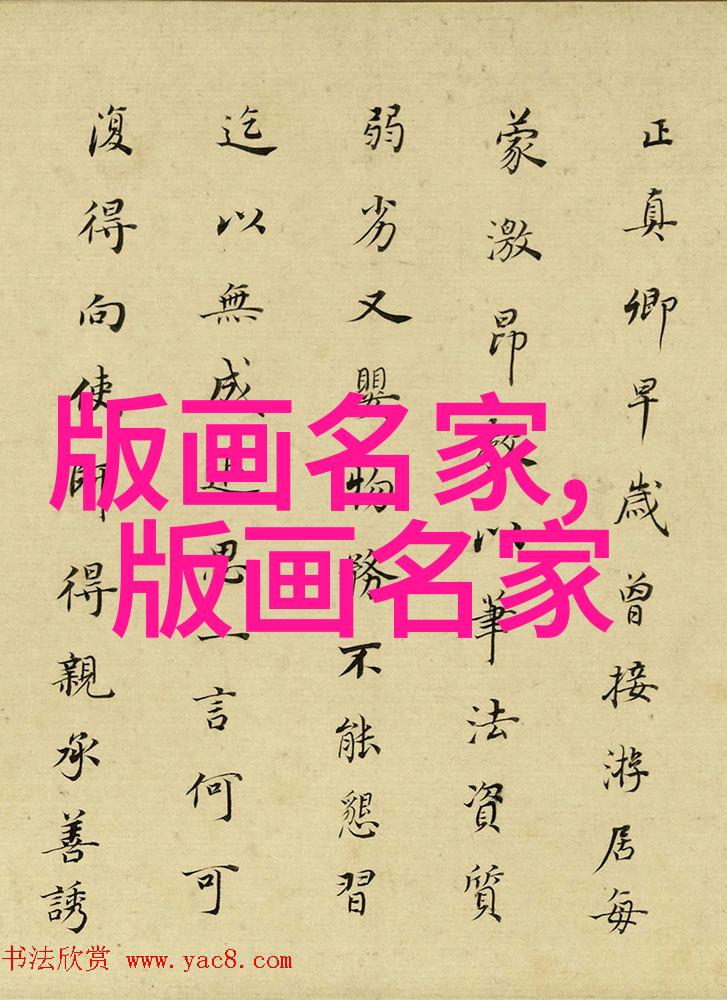 正真卿早歲曾接游居每
蒙激昂教以筆法資質
弱劣又嬰物務不能懇習
迄以無成追思一言何可
復得向使師得親承善誘
版画名家,
版画名家
书法欣赏 www.yac8.com